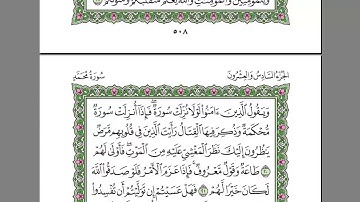 وَلِلْمُؤْمِنِينَ وَالْمُؤْمِنَاتِ وَاللَّهُ يَعْلَمُ مُتَقَلَّبَكُمْ وَمَثْوَاكُمْ
٥٠٨
الجزء السادس والعشرون
سورة محمد
وَيَقُولُ الَّذِينَ ءَامَنُوا لَوْلَا نُزِّلَتْ سُورَةٌ فَإِذَا أُنزِلَتْ سُورَةٌ
مُّحْكَمَةٌ وَذُكِرَ فِيهَا الْقِتَالُ رَأَيْتَ الَّذِينَ فِي قُلُوبِهِم مَّرَضٌ
يَنظُرُونَ إِلَيْكَ نَظَرَ الْمَغْشِيِّ عَلَيْهِ مِنَ الْمَوْتِ فَأَوْلَى لَهُمْ
٢٠ طَاعَةٌ وَقَوْلٌ مَّعْرُوفٌ فَإِذَا عَزَمَ الْأَمْرُ فَلَوْ صَدَقُوا اللَّهَ
لَكَانَ خَيْرًا لَّهُمْ ٢١ فَهَلْ عَسَيْتُمْ إِن تَوَلَّيْتُمْ أَن تُفْسِدُوا